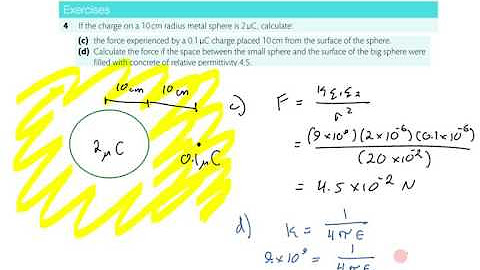 Exercises
4 If the charge on a 10 cm radius metal sphere is 2 μC, calculate:
(c) the force experienced by a 0.1 μC charge placed 10 cm from the surface of the sphere.
(d) Calculate the force if the space between the small sphere and the surface of the big sphere were
filled with concrete of relative permittivity 4.5.
10cm 10cm
2μC
0.1μC
c) F = kq₁q₂ / r²
= (9×10⁹)(2×10⁻⁶)(0.1×10⁻⁶) / (20×10⁻²)
= 4.5×10⁻² N
d) k = 1 / 4πε
9×10⁹ = 1 / 4πε